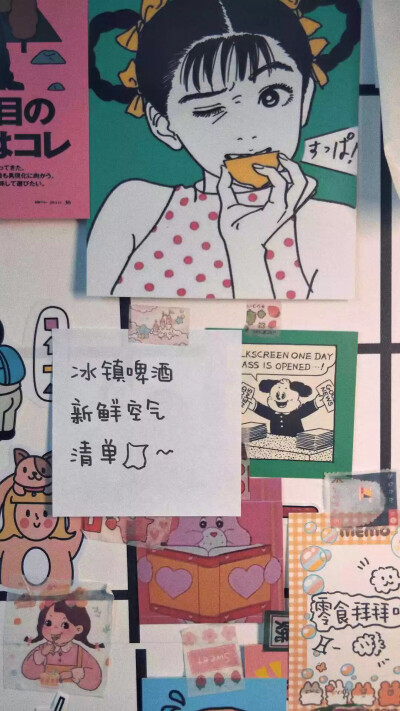 目の
はコレ
すっぱ!
LKSCREEN ONE DAY
ASS IS OPENED…!
冰镇啤酒
新鲜空气
清单～
memo
零食拜拜